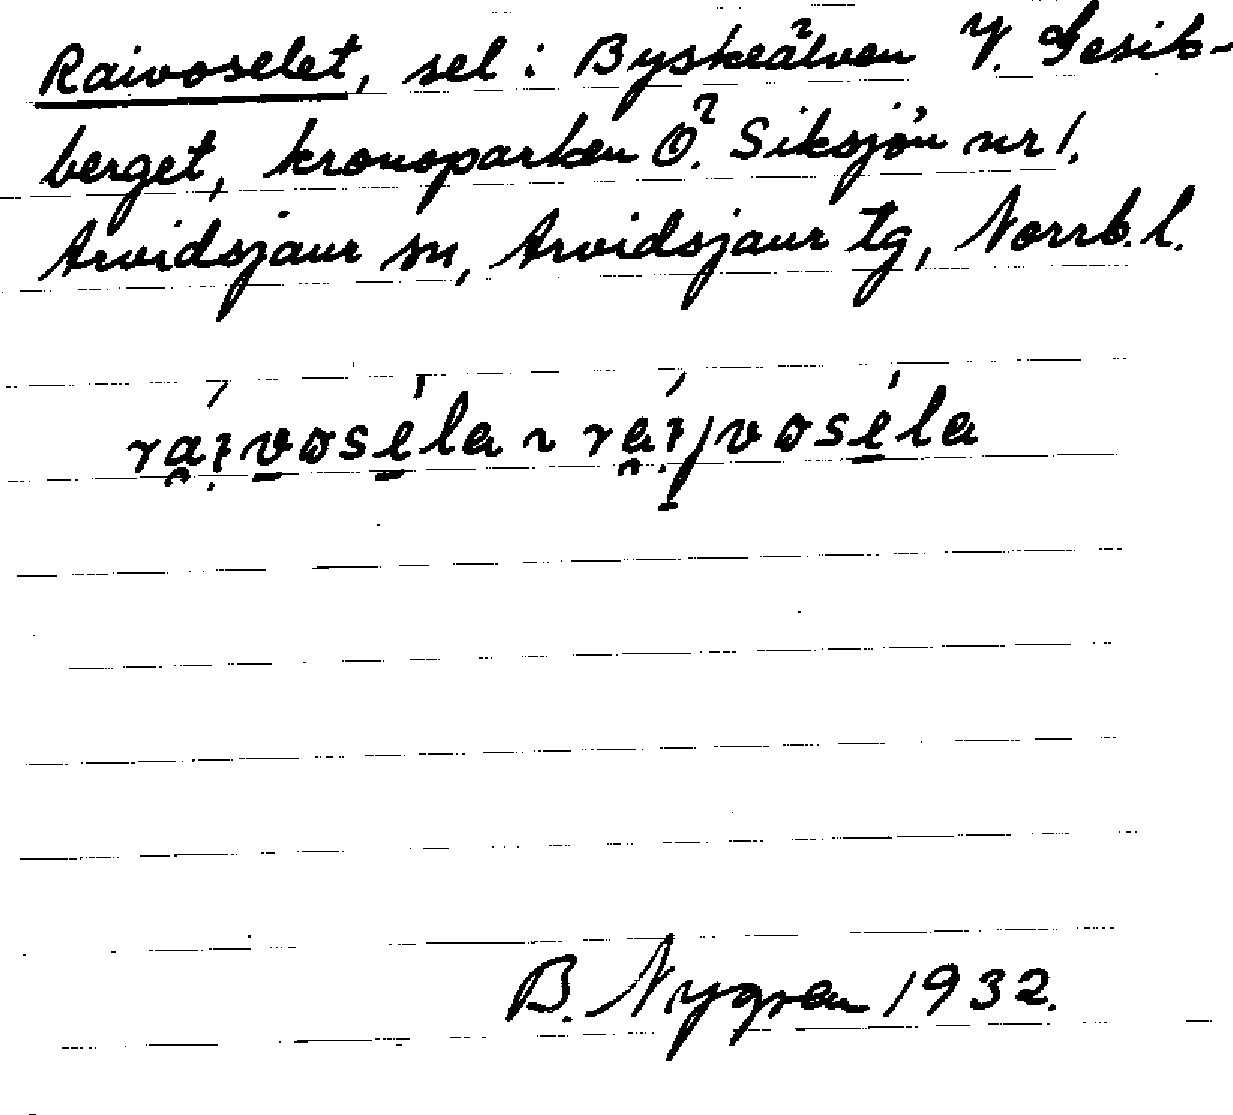 Raivoselet, sel i Byskeälven V. Lesik-
berget, kronoparken Ö. Siksjön nr 1.
Arvidsjaur sn, Arvidsjaur tg, Norrb. l.
B. Nygren 1932.